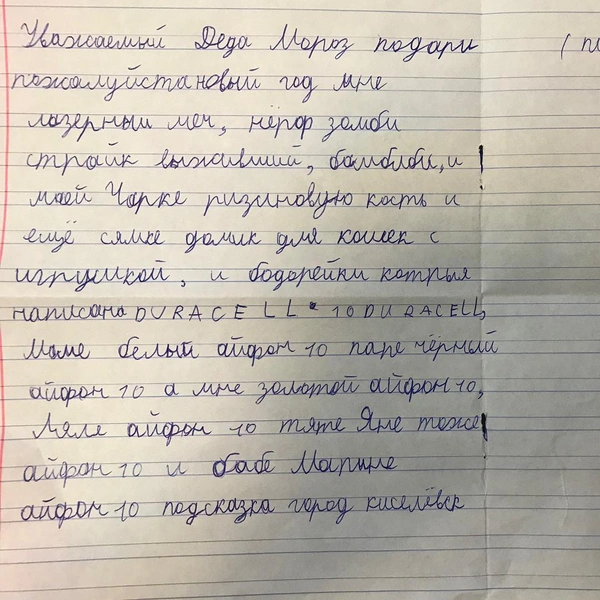 Уважаемый Деда Мороз подари
пожалуйстановый год мне
лазерный меч, нёрф зомби
страйк выживший, бамблби, и
моей Чарке ризиновую кость и
ещё сямке домик для кошек с
игрушкой, и бодарейки котрыя
написана DURACELL 10 DURACELL,
Маме белый айфон 10 папе чёрный
айфон 10 а мне золотой айфон 10,
Ляле айфон 10 тяте Яне тоже
айфон 10 и бабе Марине
айфон 10 подсказка город киселёвск